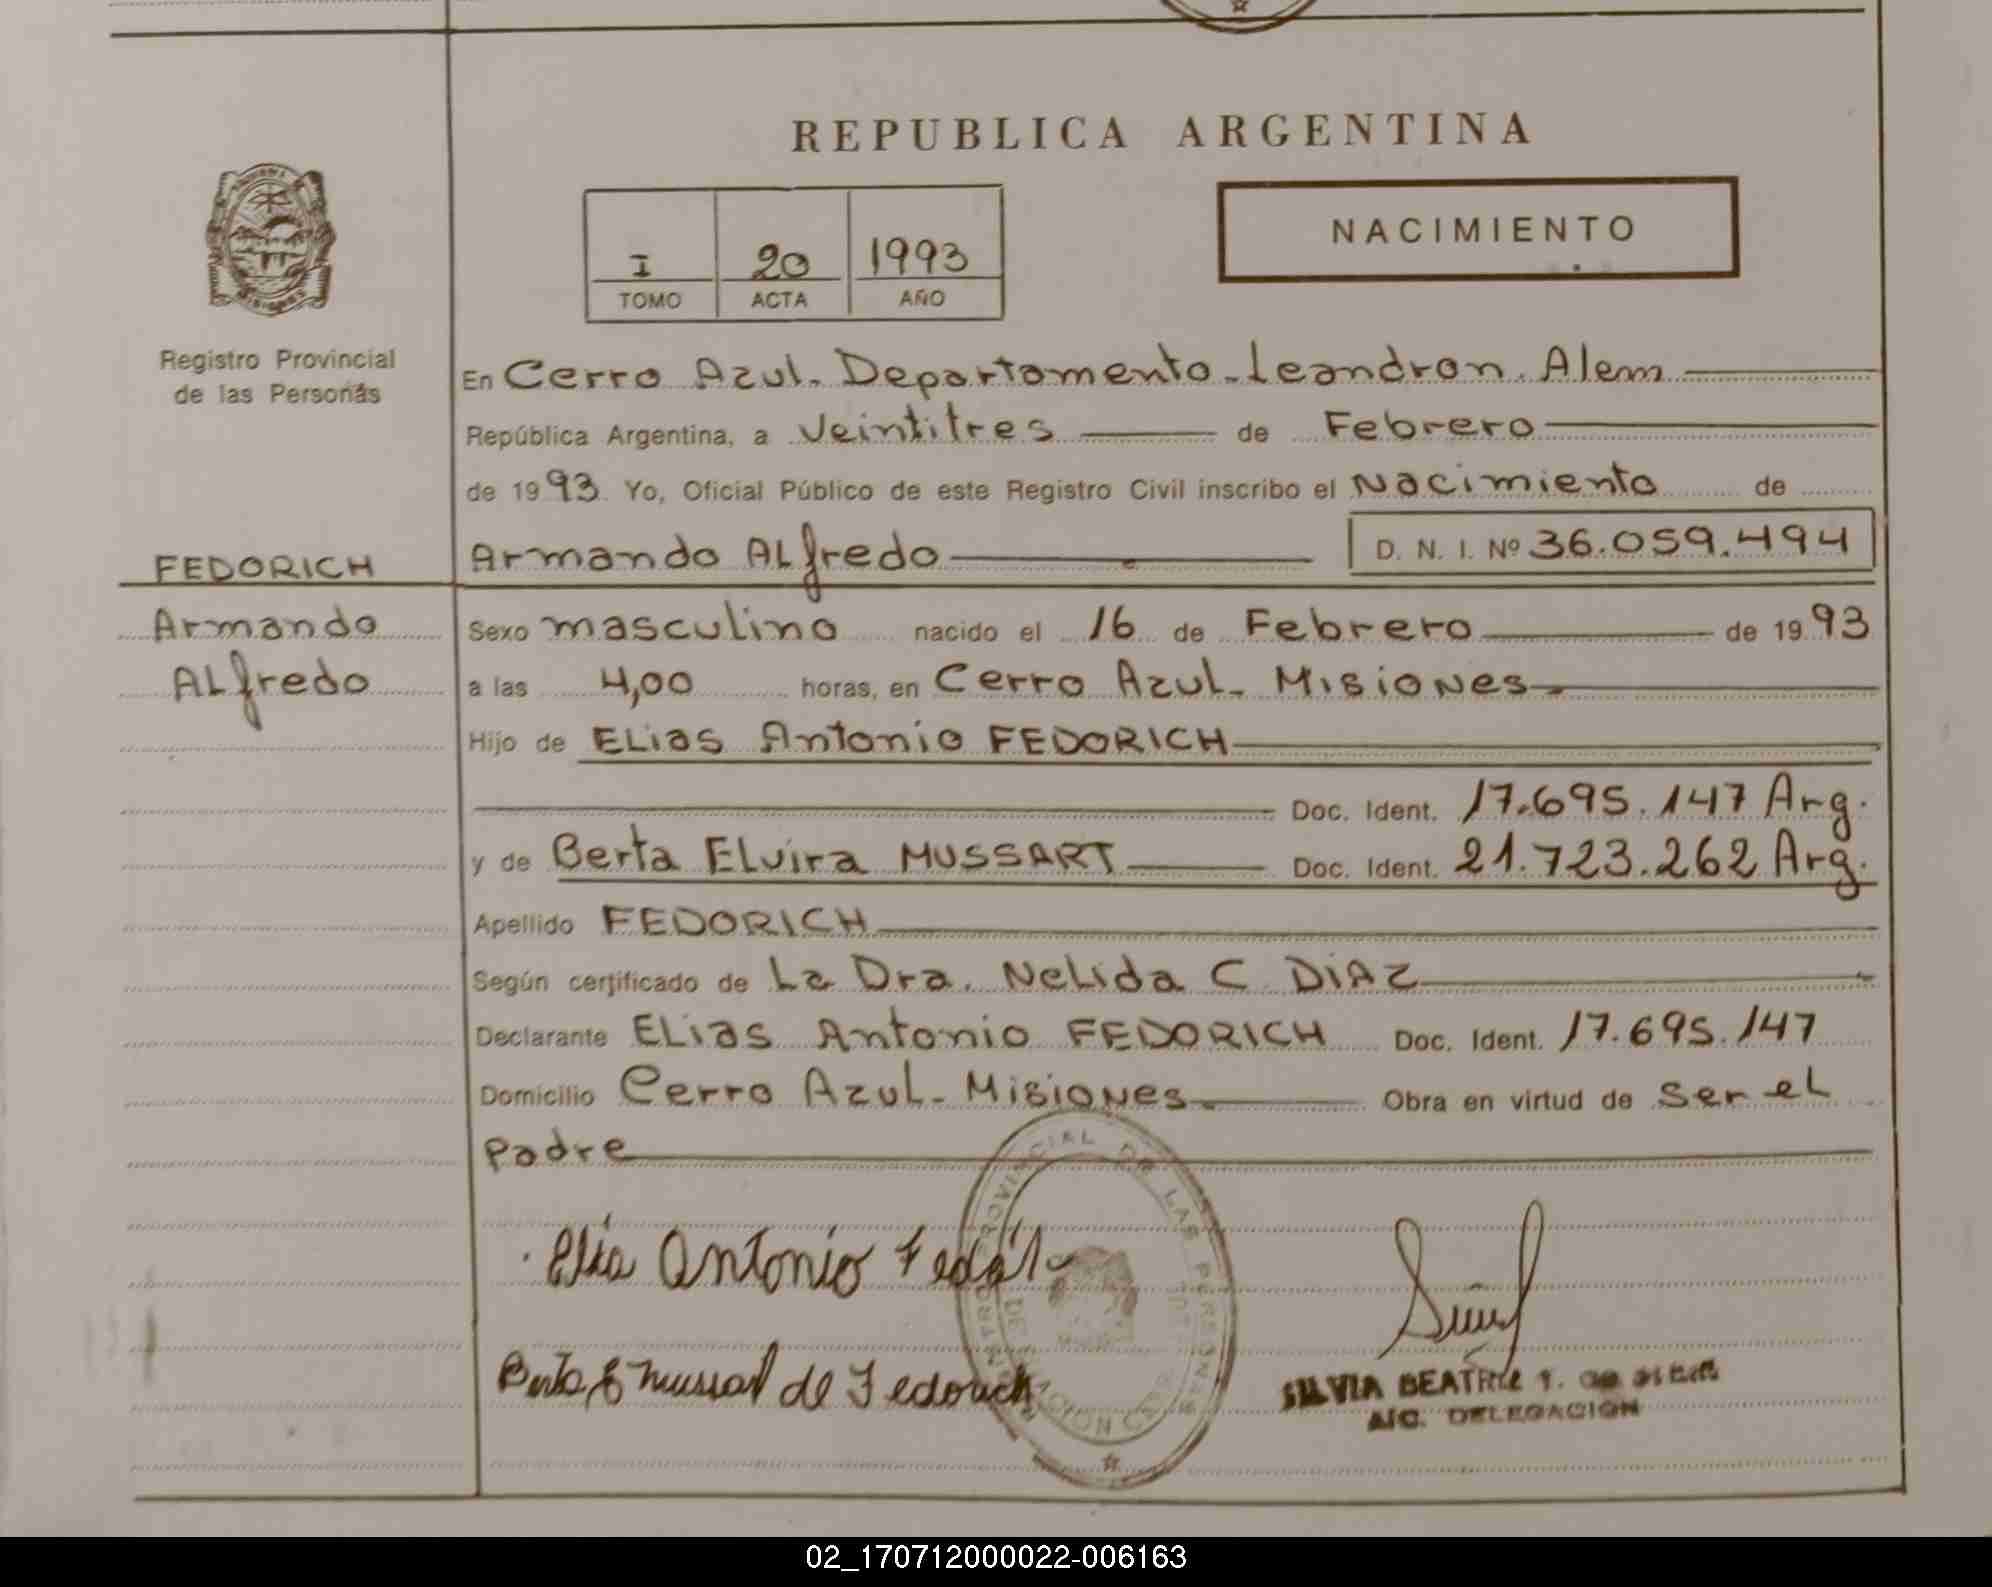 REPUBLICA ARGENTINA
NACIMIENTO
I 20 1993
TOMO ACTA AÑO
Registro Provincial
de las Personas
En Cerro Azul. Departamento. Leandron. Alem
República Argentina, a Veintitres de Febrero
de 1993. Yo, Oficial Público de este Registro Civil inscribo el Nacimiento de
FEDORICH
Armando Alfredo D. N. I. Nº 36.059.494
Armando
Alfredo
Sexo masculino nacido el 16 de Febrero de 1993
a las 4,00 horas, en Cerro Azul. Misiones
Hijo de ELias Antonio FEDORICH
Doc. Ident. 17.695.147 Arg.
y de Berta Elvira MUSSART Doc. Ident. 21.723.262 Arg.
Apellido FEDORICH
Según certificado de La Dra. Nelida C DIAZ
Declarante ELias Antonio FEDORICH Doc. Ident. 17.695.147
Domicilio Cerro Azul. Misiones Obra en virtud de ser el
Padre
Antonio
de Fedorich
PROVINCIAL DE LAS PERSONAS
SILVIA BEATRIZ
DELEGACION
02_170712000022-006163